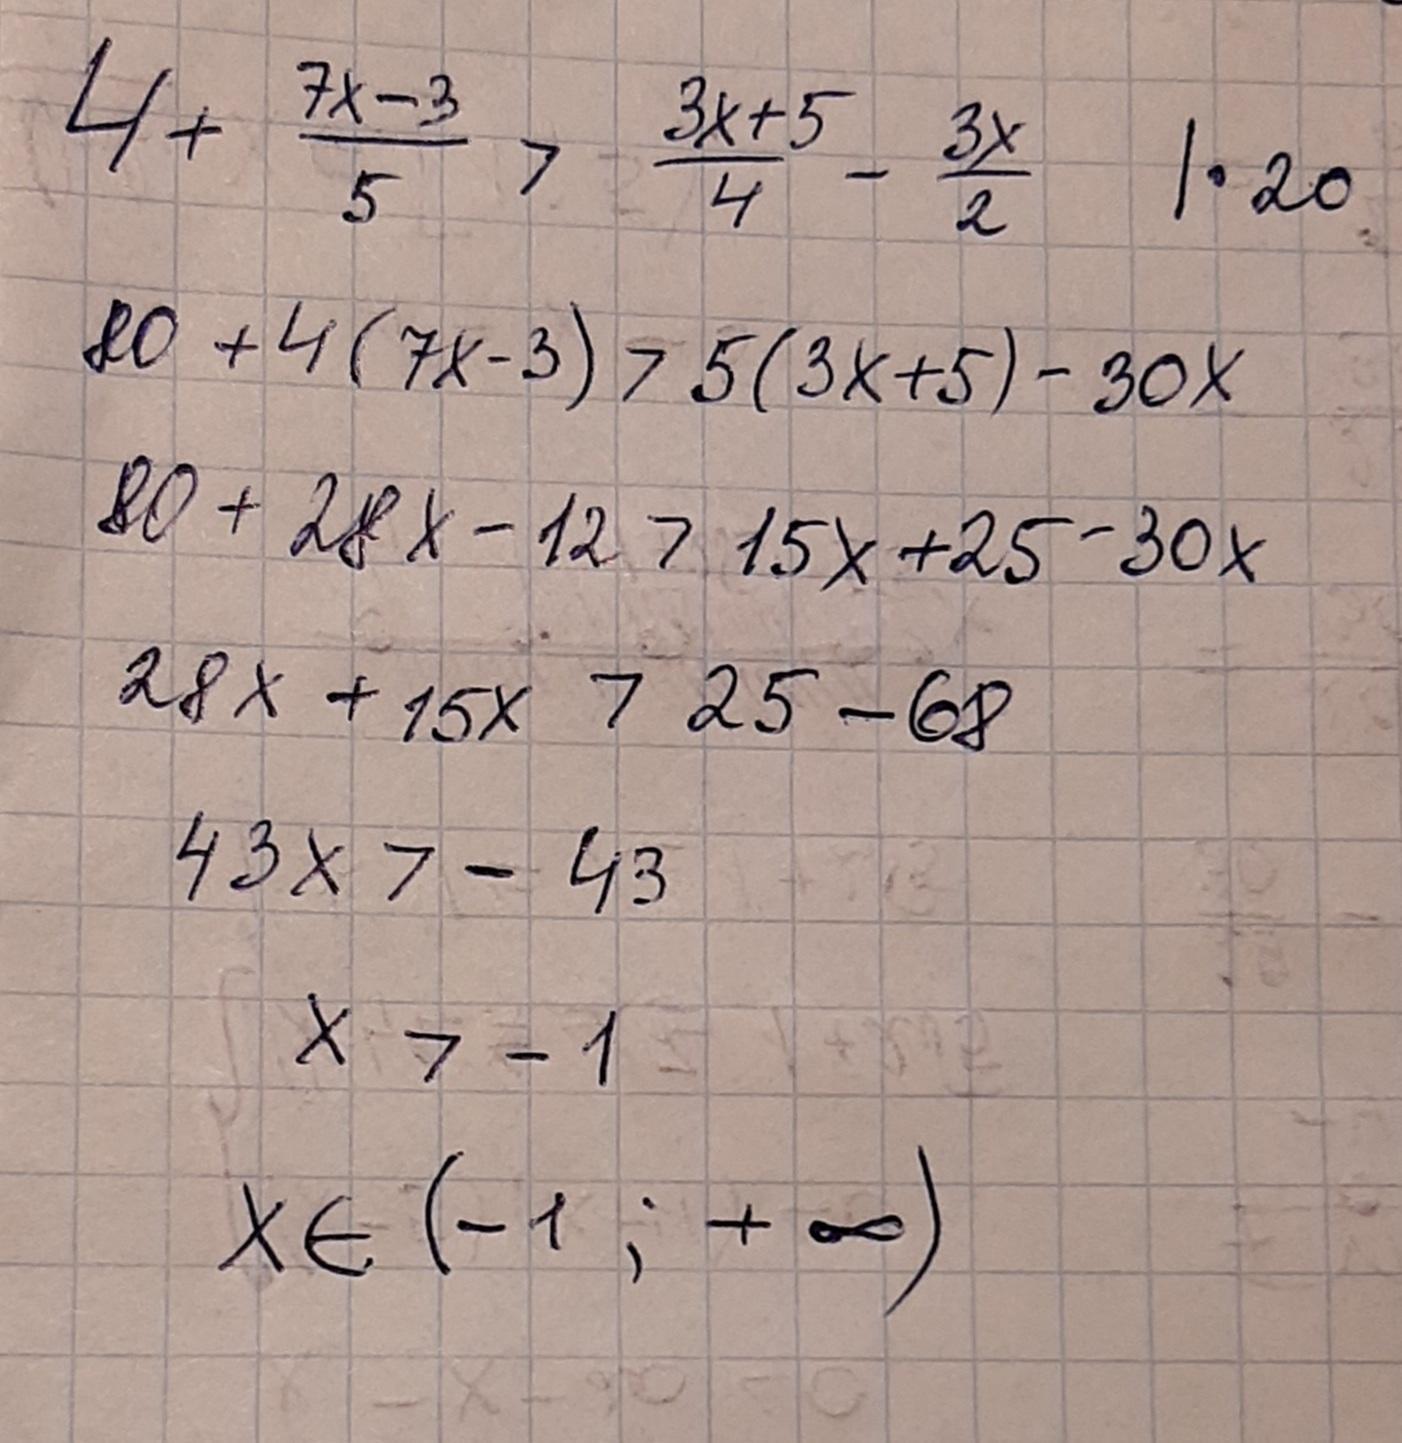 4 + \frac{7x-3}{5} > \frac{3x+5}{4} - \frac{3x}{2} | · 20
80 + 4(7x-3) > 5(3x+5) - 30x
80 + 28x - 12 > 15x + 25 - 30x
28x + 15x > 25 - 68
43x > - 43
x > - 1
x ∈ (-1 ; + ∞)